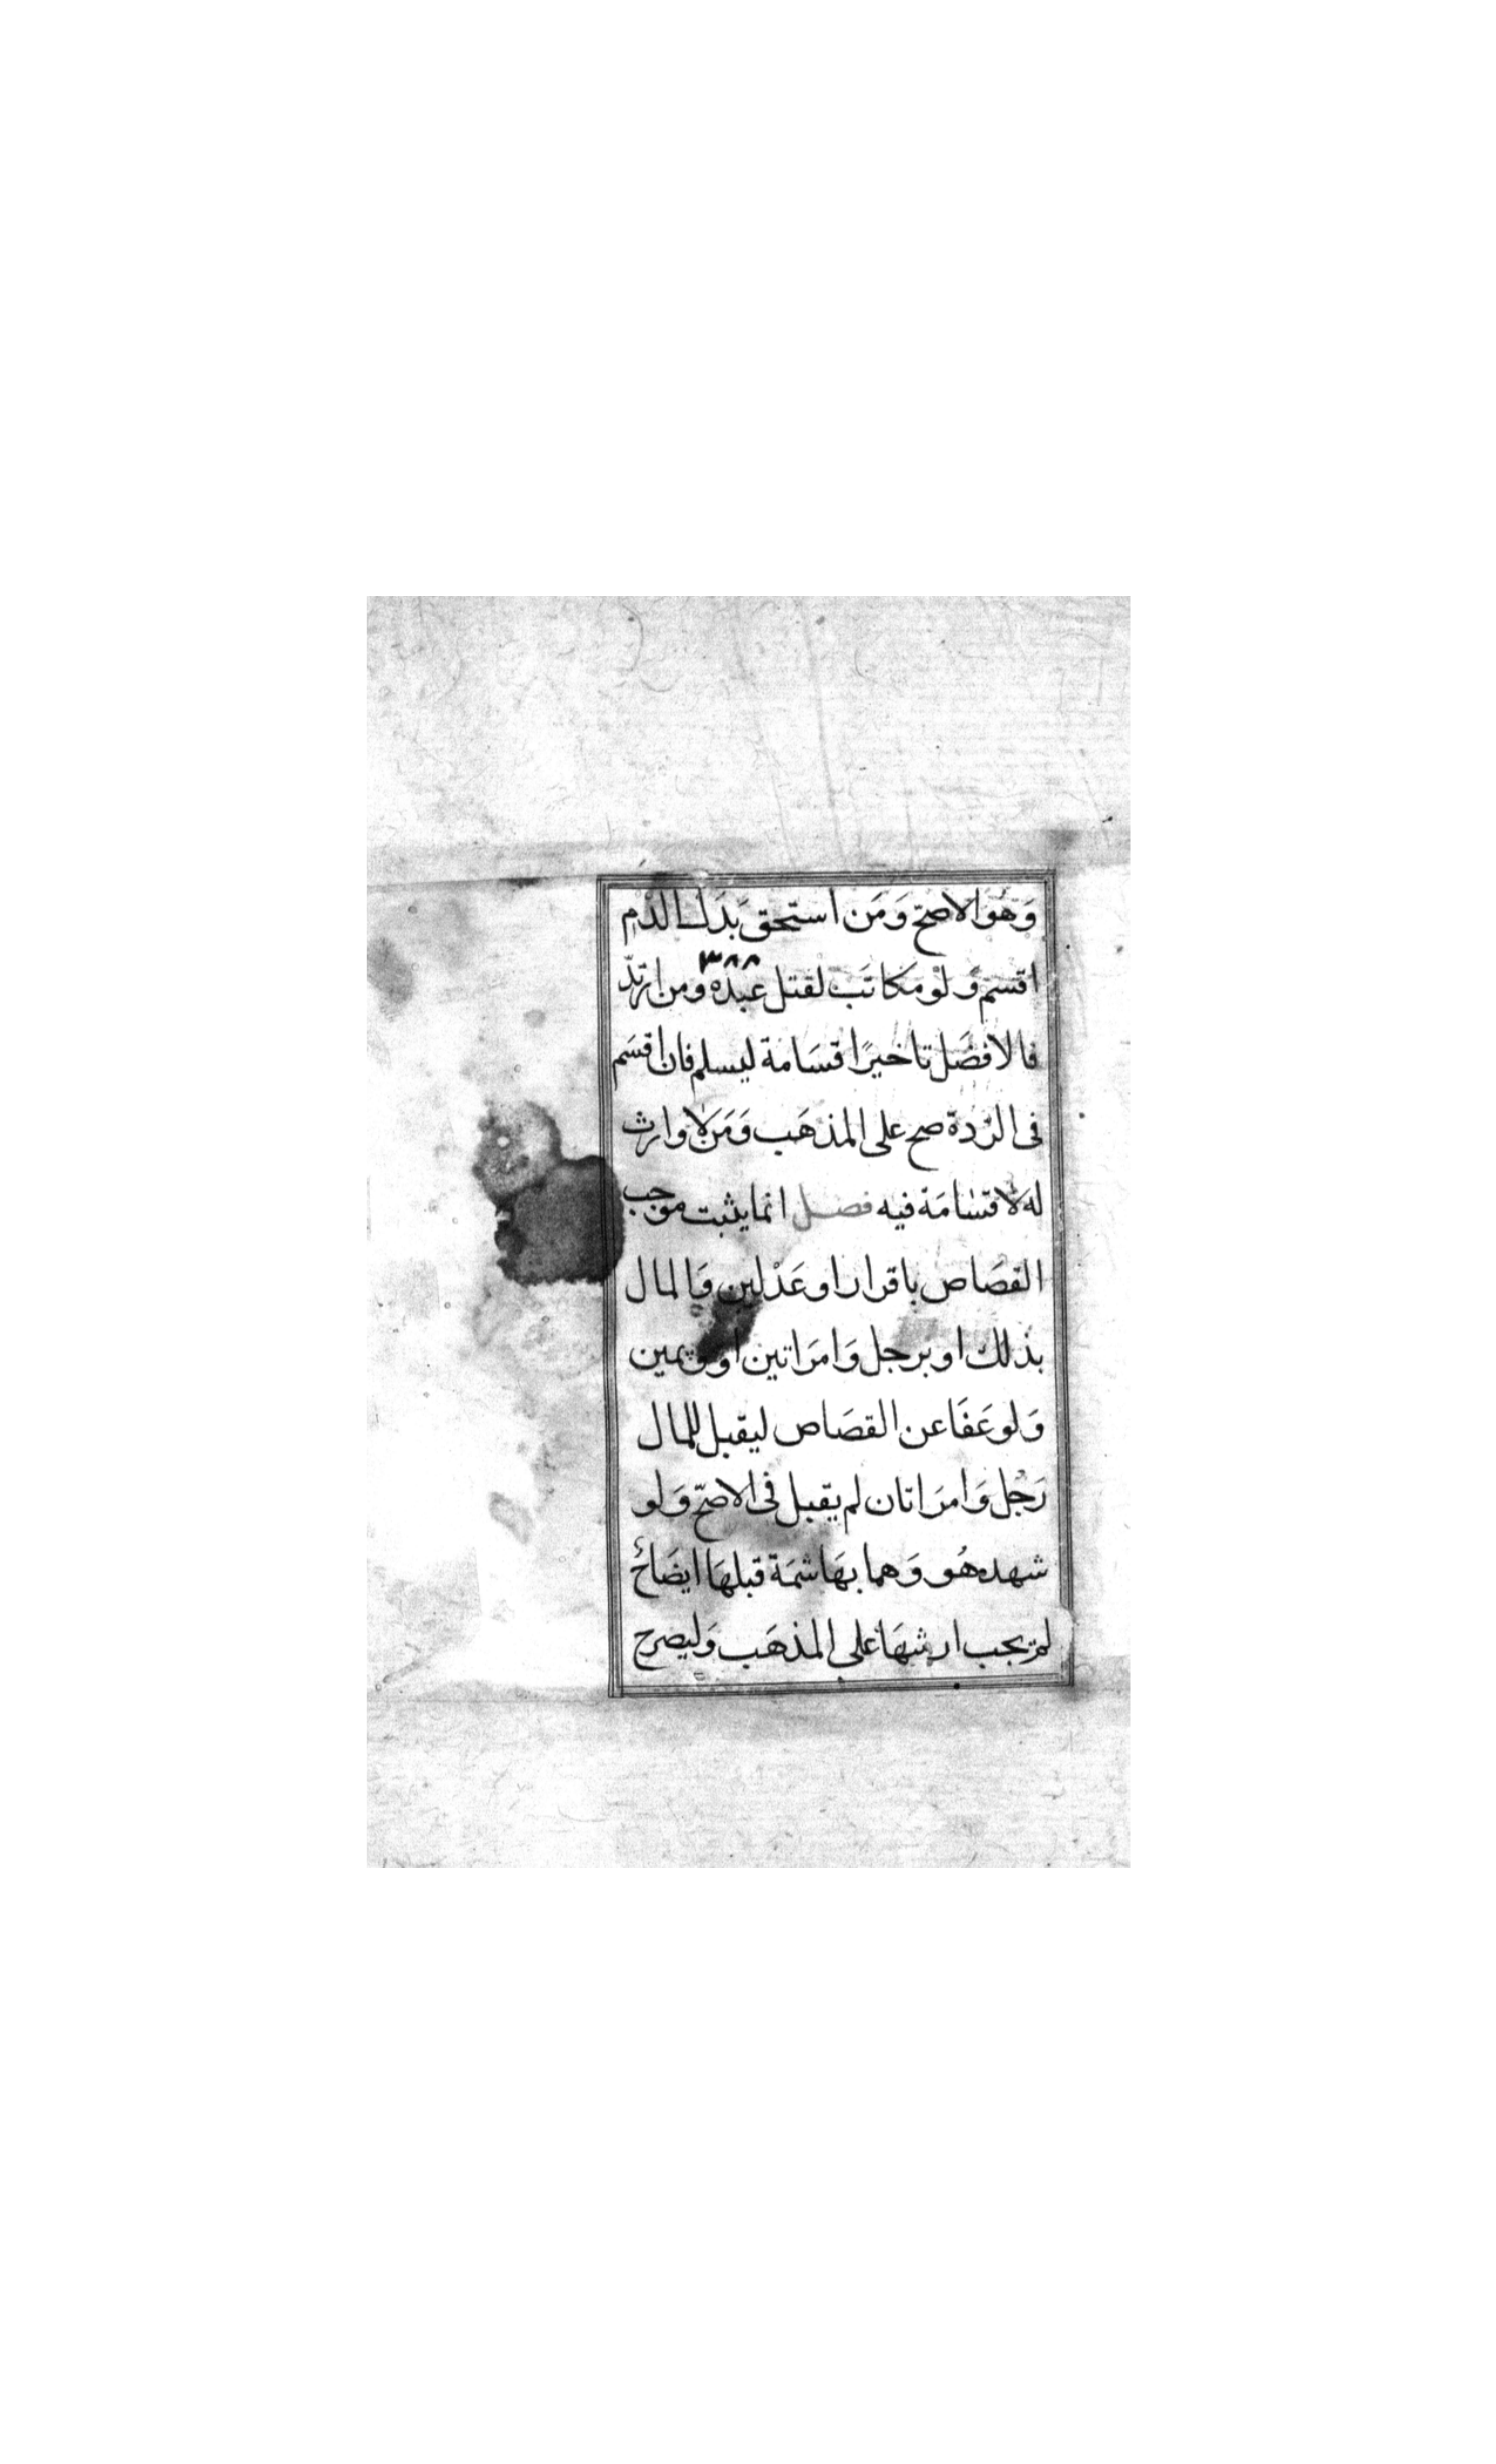 وَهُوَ الاصحّ وَمَن استحق بَدَل الدم
٣٨٨
اقسم وَلو مكاتَب لقتل عبده ومن ارتدّ
فالافضَل تاخير اقسَامة ليسلم فان اقسَم
فى الرّدة صح على المذهَب وَمَن لا وارث
له لا قسَامَة فيه فصل انما يثبت موجب
القصَاص باقرار او عَدْلين وَالمال
بذلك او برجل وَامرَاتين او ويمين
وَلو عَفَا عن القصَاص ليقبل للمال
رَجُل وَامرَاتان لم يقبل فى الاصحّ وَلو
شهد هُو وَهما بهَاشمَة قبلهَا ايضَاحٌ
لم يجب ارشهَا على المذهَب وَليصرح